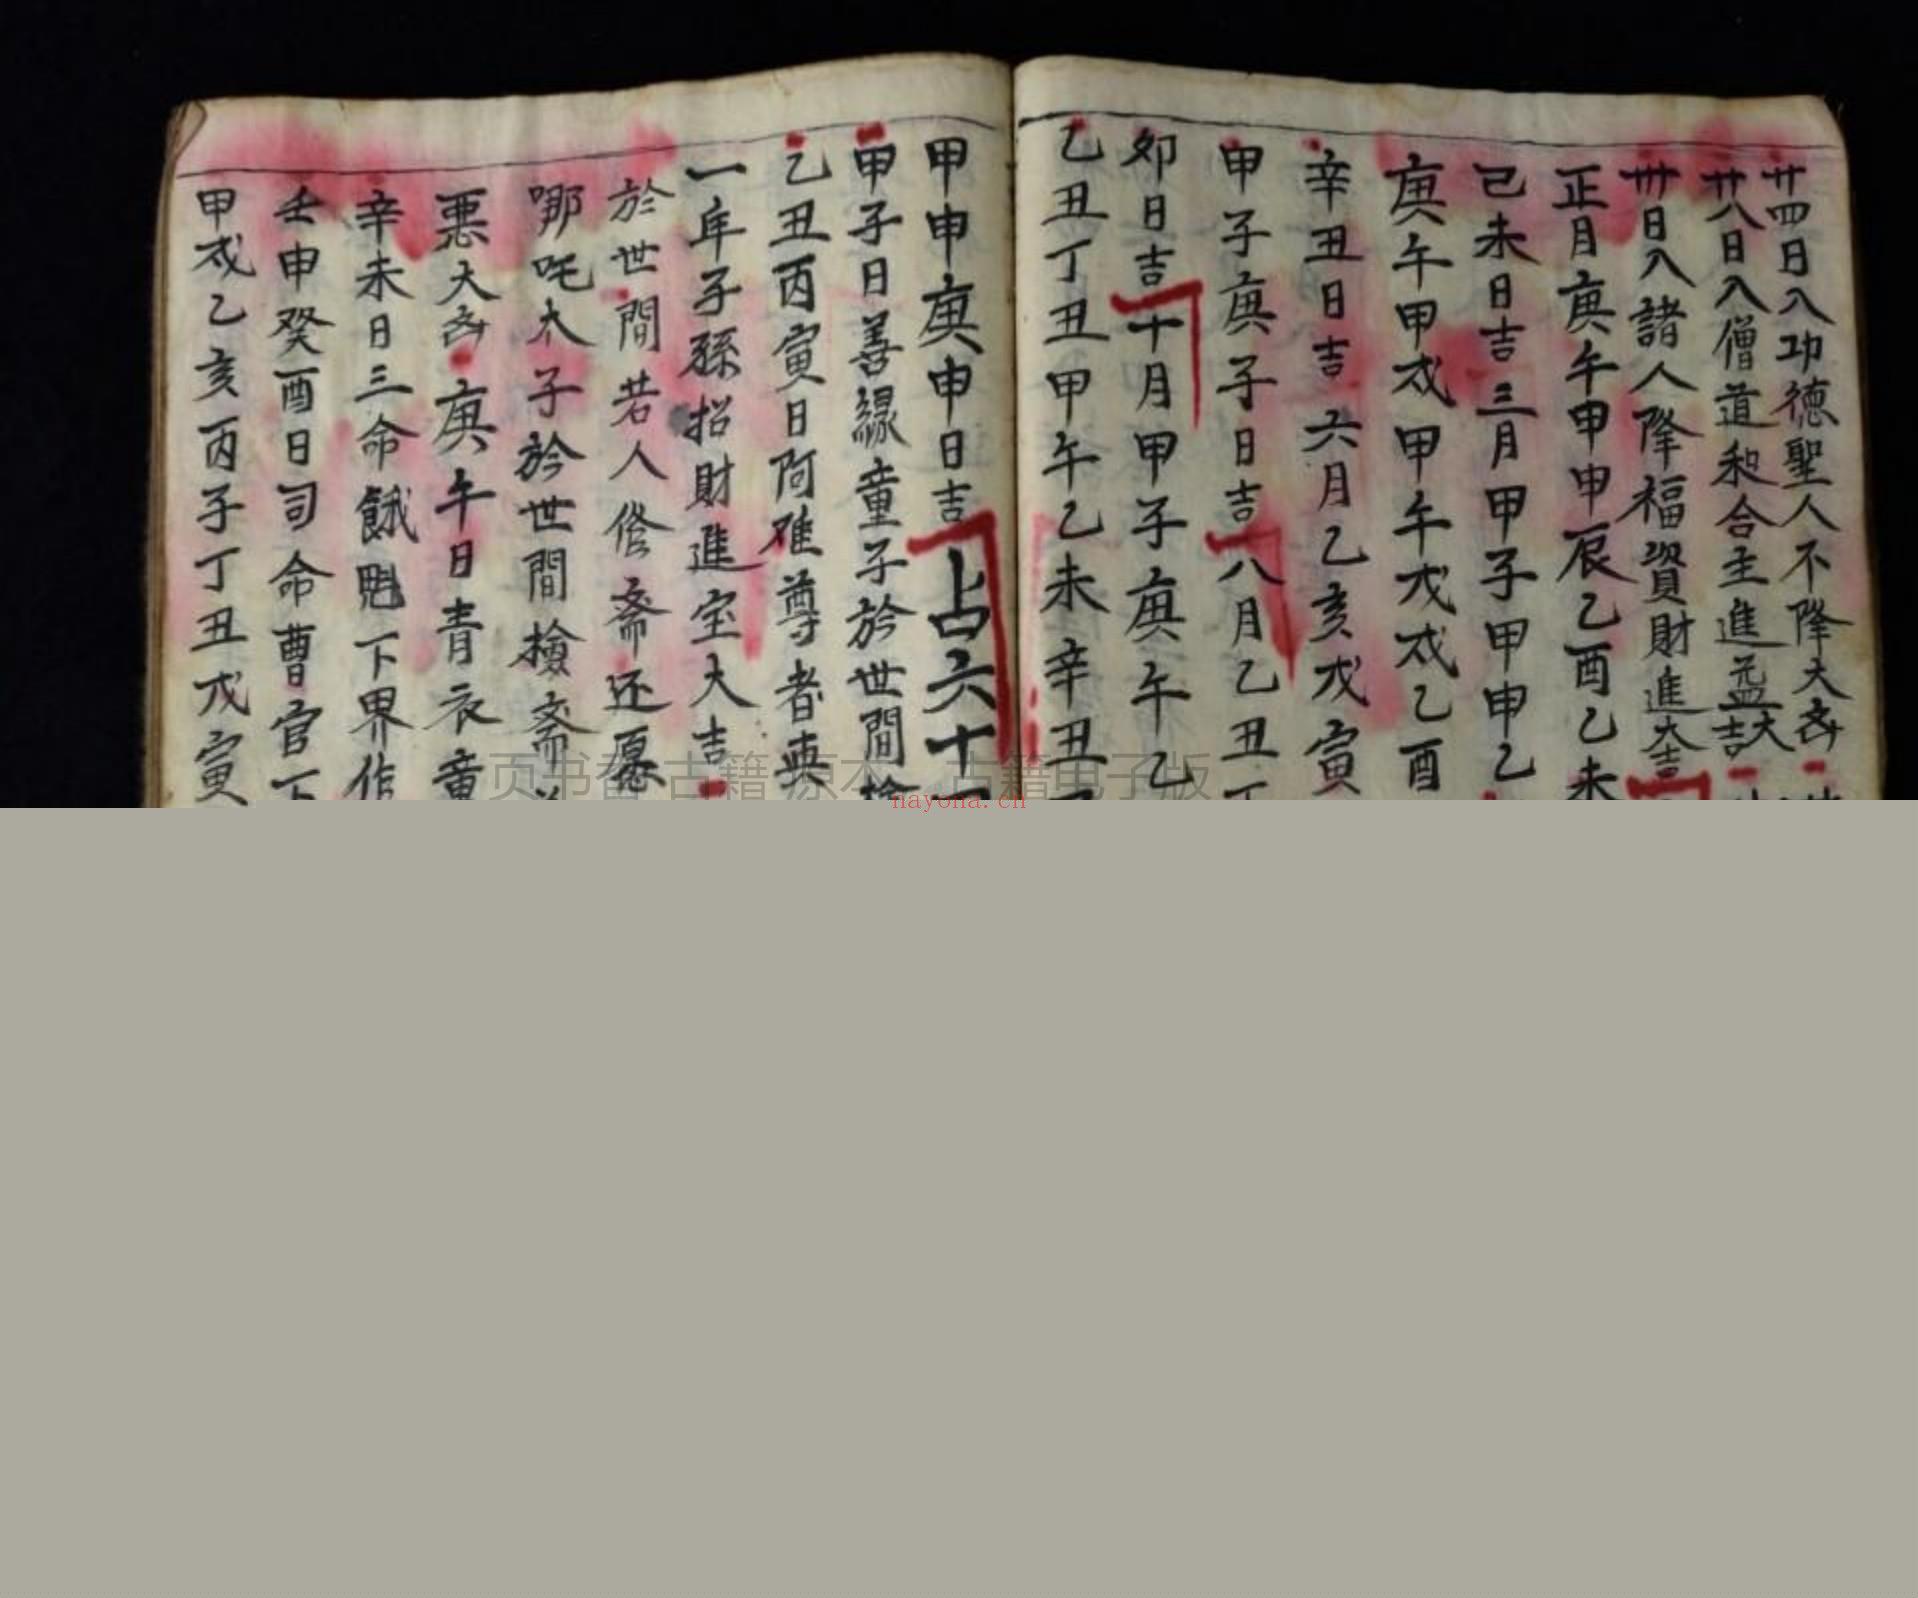 廿四日入功德聖人不降大吝
廿八日入僧道和合主進益大吉
卅日入諸人降福資財進大吉
正月庚午甲申申辰乙酉乙未
己未日吉三月甲子甲申乙
庚午甲戌甲午戊戌乙酉
辛丑日吉六月乙亥戊寅
甲子庚子日吉八月乙丑丁
卯日吉十月甲子庚午乙
乙丑丁丑甲午乙未辛丑
甲申庚申日吉占六十
甲子日善緣童子於世間檢
乙丑丙寅日阿难尊者與
一年子孫招財進宝大吉
於世間若人俢斎还愿
哪吒太子於世間檢斎
悪大吝庚午日青衣童
辛未日三命餓鬼下界作
壬申癸酉日司命曹官下
甲戌乙亥丙子丁丑戊寅
古籍 原本 古籍电子版
nayona.cn